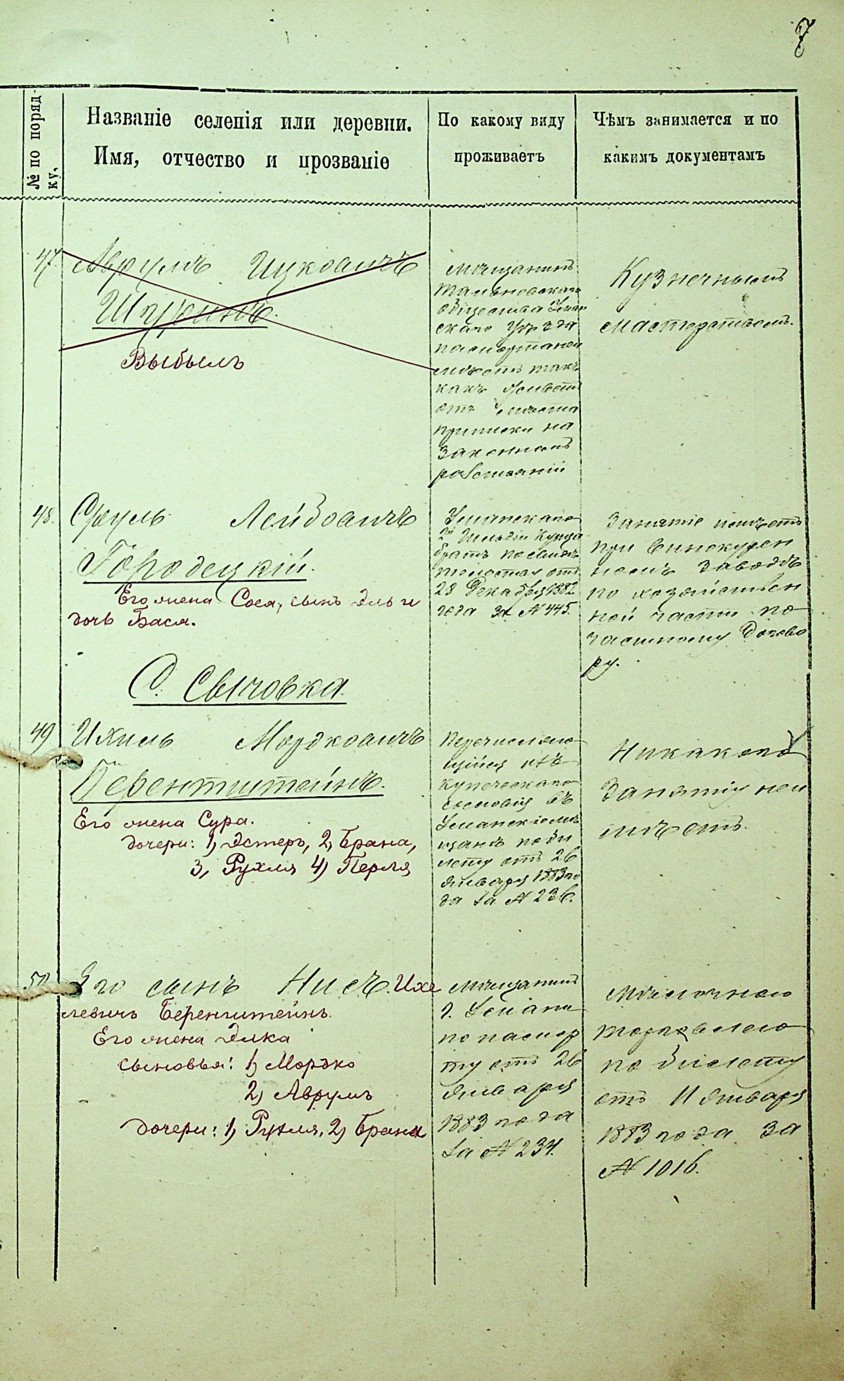 7
№ по поряд-
ку,
Названіе селенія или деревни.
Имя, отчество и прозваніе
По какому виду
проживаетъ
Чѣмъ занимается и по
какимъ документамъ
47.
Аврумъ Ицковичъ
Шуринъ.
Выбылъ
мѣщанинъ
Тальновскаго
общества Уман
скаго уѣзда
какъ
отъ
приписки на
законномъ
Кузнечнымъ
мастерствомъ.
48.
Сруль Лейбовичъ
Городецкій.
Его жена Сося, сынъ Эль и
дочь Бася.
Уманскаго
28 Декабря 1882
года за № 445.
Занятіе имѣетъ
при Винокурен
номъ заводѣ
по хозяйствен
ной части по
частному Догово
ру.
С. Сычовка
49
Ихиль Мордковичъ
Беренштейнъ.
Его жена Сура.
дочери: 1) Эстеръ, 2) Брана,
3) Рухля 4) Перля
Перечисляю
щійся изъ
купеческаго
сословія въ
Уманскіе мѣ
щане по би
лету отъ 26
Января 1883 го
да за № 236.
Никакого
занятія неи
мѣетъ.
50
Его сынъ Нисъ. Ихе
левичъ Беренштейнъ.
Его жена Элка
сыновья: 1) Мордко
2) Аврумъ
дочери: 1) Рухля, 2) Брана
Мѣщанинъ
г. Умани
по паспор
ту отъ 26
Января
1883 года
за № 234.
Мѣлочною
торговлею
по билету
отъ 11 Января
1883 года за
№ 1016.